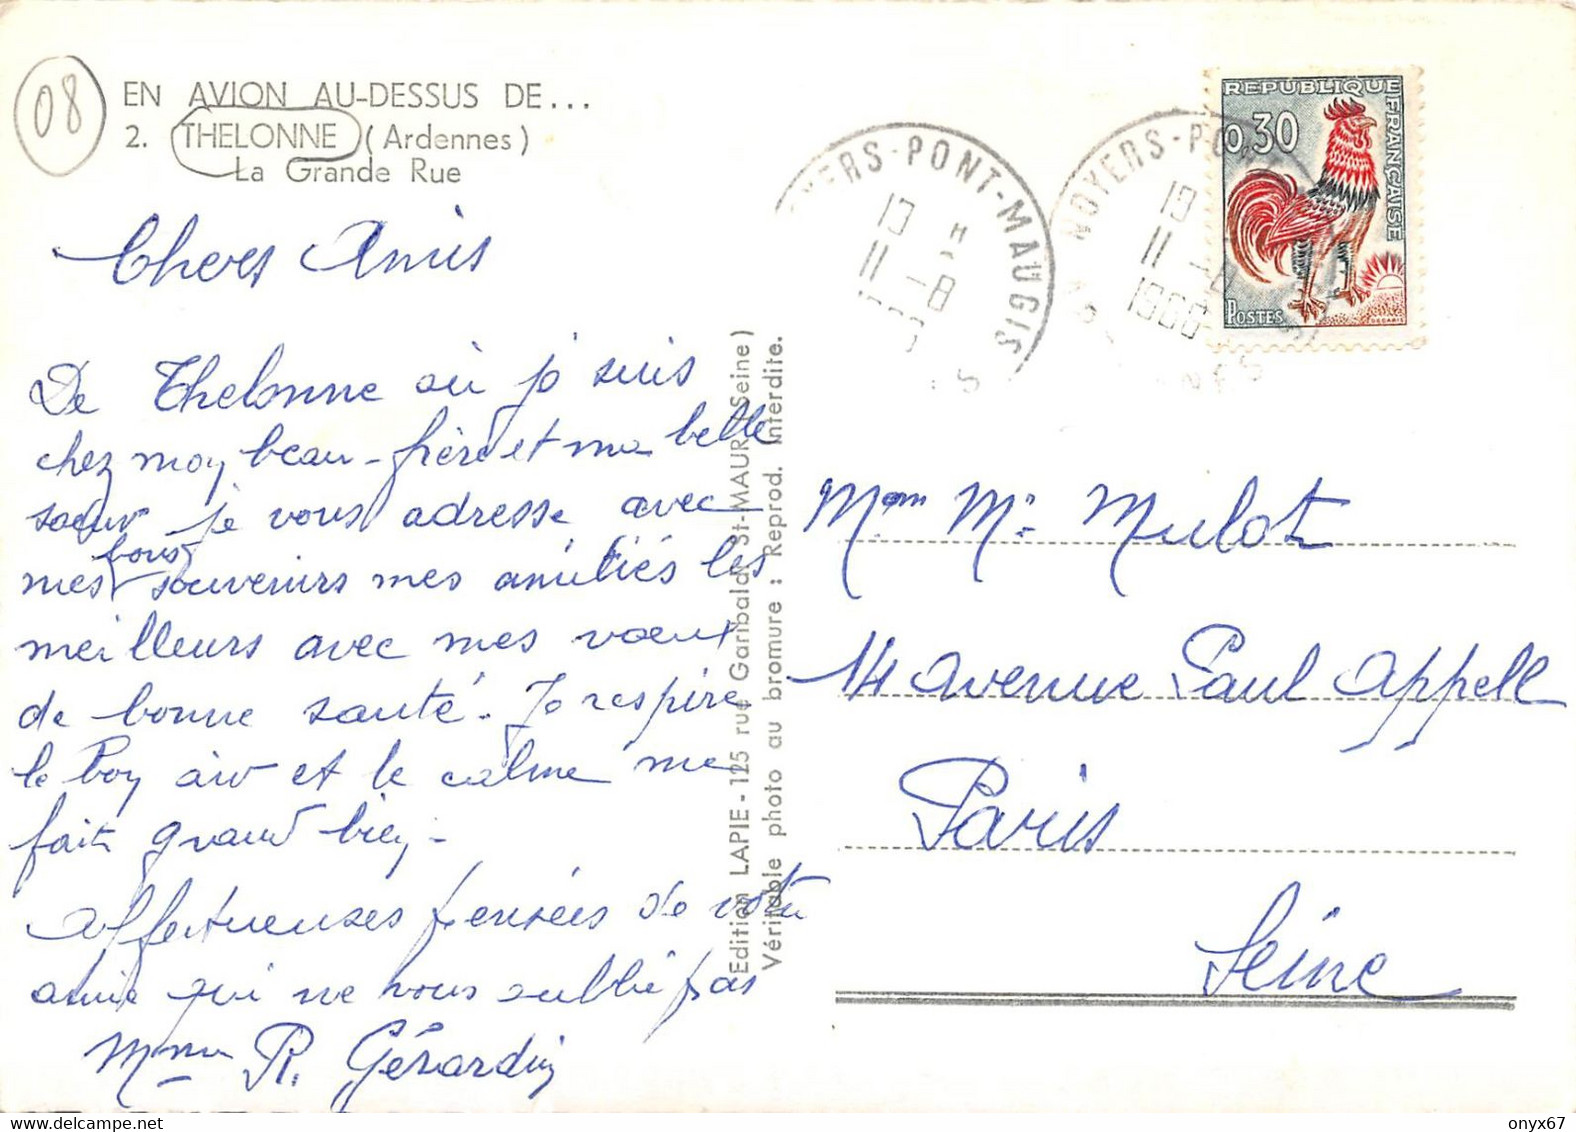 08
EN AVION AU-DESSUS DE...
2. THELONNE (Ardennes)
La Grande Rue
Chers Amis
De Thelonne où je suis
chez mon beau-frère et ma belle
soeur je vous adresse avec
mes bons souvenirs mes amitiés les
meilleurs avec mes voeux
de bonne santé. Je respire
le bon air et le calme me
fait grand bien.
Affectueuses pensées de votre
amie qui ne vous oublie pas
Mme R. Gérardin
Edition LAPIE - 125 rue Garibaldi St-MAUR (Seine)
Véritable photo au bromure : Reprod. Interdite.
YERS-PONT-MAUGIS
13 H
11 -8
NOYERS-PON
13
11 -8
1966
REPUBLIQUE FRANÇAISE
0,30
POSTES
DECARIS
Mme Mr Mulot
14 avenue Paul Appell
Paris
Seine
onyx67